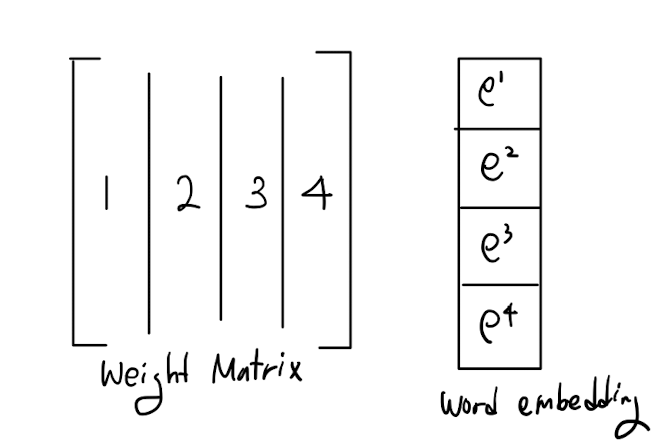 1 2 3 4
Weight Matrix
e¹
e²
e³
e⁴
Word embedding